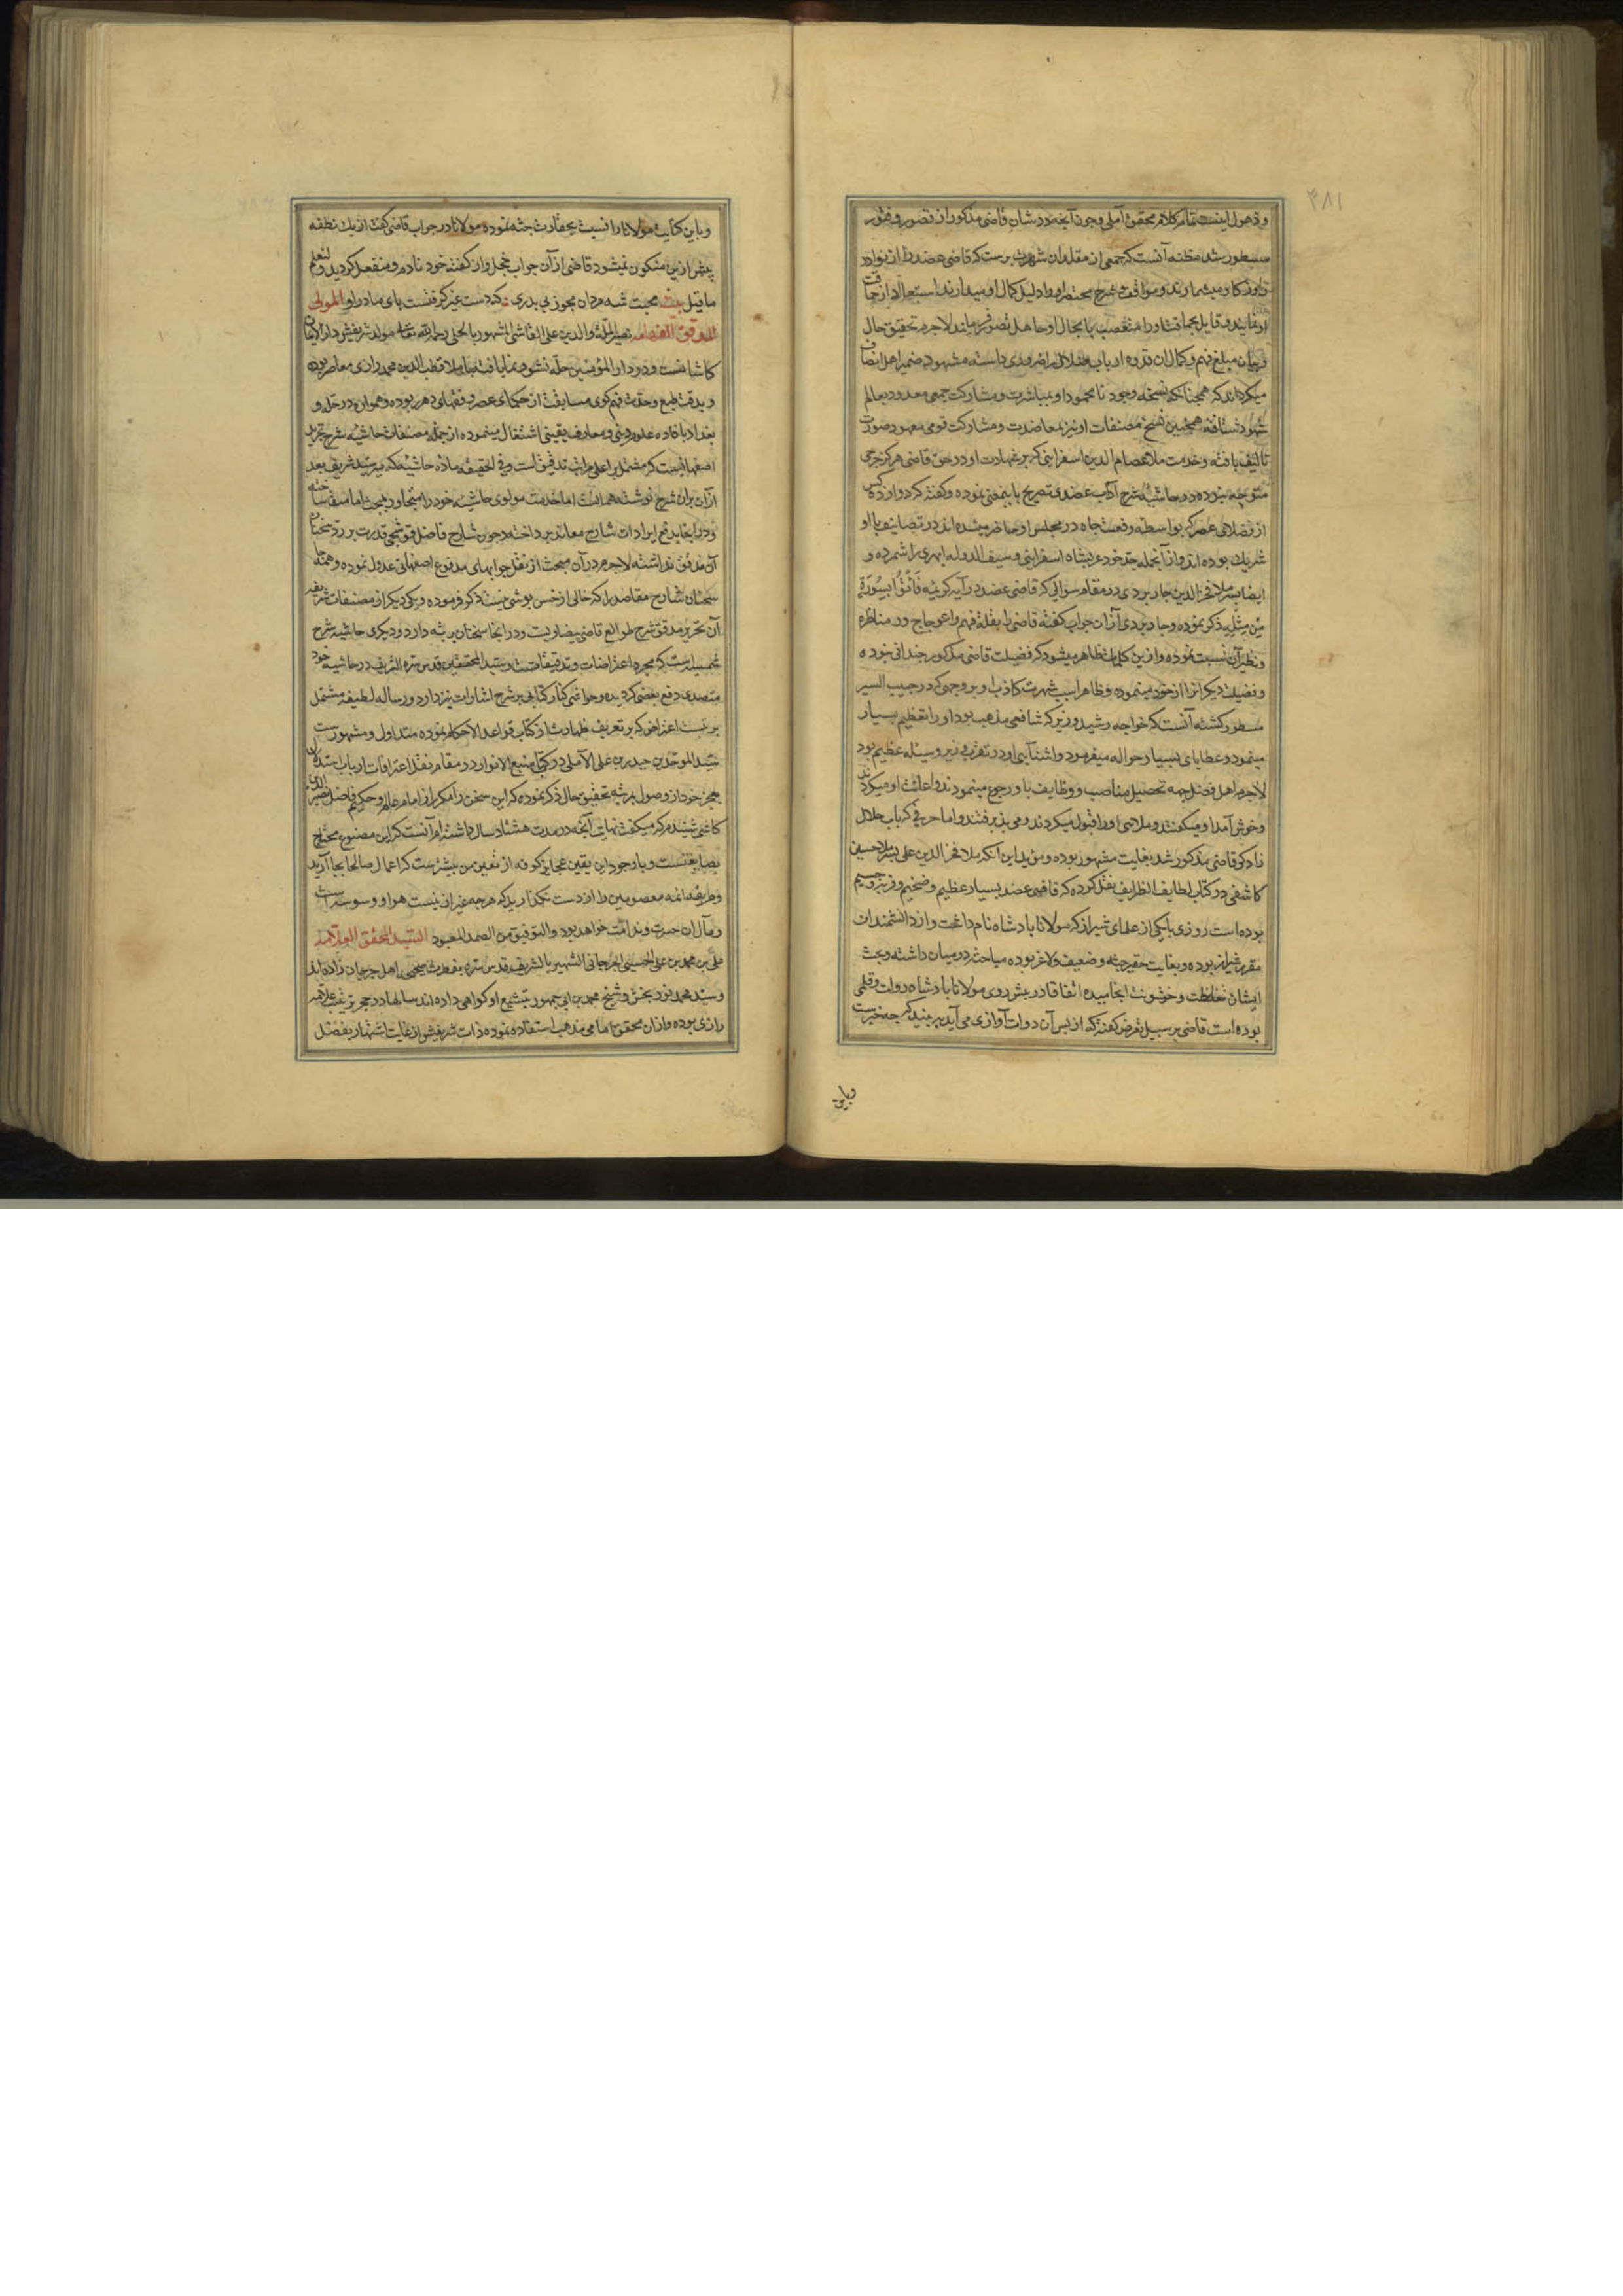 ۳۸۱
و ذهول اینست تمام کلام محقق آملی و چون آنچه در شان قاضی مذکور از قصور و فتور
مسطور شد مظنه آنست که جمعی از مقلدان شهرت پرست که قاضی عضد را از نوادر
روزکار میشمارند و مواقف و شرح مختصر او را دلیل کمال او میدارند استبعاد از
او نمایند و قایل را متعصب یا بحال او جاهل تصور فرمایند لاجرم تحقیق حال
و بیان مبلغ فهم و کمال آن قدوه ارباب ضلال را ضروری دانسته مشهود ضمیر اهل انصاف
میکرداند که همچنانکه نسخه وجود نامحمود او بمباشرت و مشارکت جمعی معدود بعالم
شهود شتافته همچنین نسخ مصنفات او نیز بمعاضدت و مشارکت قومی معهود صورت
تالیف یافته و خدمت ملا عصام الدین اسفراینی که بر شهادت او در حق قاضی هرکز جرحی
متوجه نبوده در حاشیه شرح آداب عضدی تصریح باینمعنی نموده و کفته که دوازده کس
از فضلای عصر که بواسطه رفعت جاه در مجلس او حاضر میشده اند در تصانیف با او
شریک بوده اند و از آنجمله جد خود عربشاه اسفراینی و سیف الدوله ابهری را شمرده و
ایضا پسر ملا فخر الدین جاربردی در مقام سوالی که قاضی عضد در آیه کریمه فَأْتُوا بِسُورَةٍ
مِنْ مِثْلِهِ ذکر نموده و جاربردی از آن جواب کفته قاضی را بقلة فهم و اعوجاج در مناظره
و نظیر آن نسبت نموده و ازین کلمات ظاهر میشود که فضیلت قاضی مذکور چندانی نبوده
و فضیلت دیکرانرا از خود مینموده و ظاهرا سبب شهرت کاذب او بر وجهی که در حبیب السیر
مسطور کشته آنست که خواجه رشید وزیر که شافعی مذهب بود او را تعظیم بسیار
مینمود و عطایای بسیار حواله میفرمود و آشنایی او در تقرب وزیر وسیله عظیم بود
لاجرم اهل فضل جهه تحصیل مناصب و وظایف باو رجوع مینمودند و اعانت او میکردند
و خوش آمد او میکفتند و ملاهی او را قبول میکردند و می پذیرفتند و اما حرفی که باب جلال
نادکو قاضی مذکور شد بغایت مشهور بوده و مؤید این آنکه ملا فخر الدین علی پسر ملا حسین
کاشفی در کتاب لطایف الظرایف نقل کرده که قاضی عضد بسیار عظیم و ضخیم و فربه و جسیم
بوده است روزی با یکی از علمای شیراز که مولانا پادشاه نام داشت و از دانشمندان
مقرر شیراز بوده و بغایت حقیر جثه و ضعیف و لاغر بوده مباحثه در میان داشته و بحث
ایشان بغلظت و خشونت انجامیده اتفاقا در پیش روی مولانا پادشاه دوات و قلمی
بوده است قاضی بر سبیل تعرض کفته که از پس آن دوات آوازی می آید ببینید که چه چیزست
و باین
و باین کنایت مولانا را نسبت بحقارت جثه نموده مولانا در جواب قاضی کفت از یک نطفه
پیش ازین متکون نمیشود قاضی از آن جواب خجل و از کفته خود نادم و منفعل کردید و لنعم
ما قیل بیت محبت شه مردان مجوز بی پدری که دست غیر کرفتست پای مادر او المولی
المدقق الفهامه نصیر الملة والدین علی القاشی المشهور بالحلی رحمه الله تعالی مولد شریفش دار الایمان
کاشانست و در دار المؤمنین حله نشو و نما یافته با ملا قطب الدین محمد رازی معاصر بوده
و بدقت طبع و حدت فهم کوی مسابقت از حکمای عصر و فقهای دهر ربوده و همواره در حله و
بغداد بافاده علوم دینی و معارف یقینی اشتغال مینموده از جمله مصنفات حاشیه شرح تجرید
اصفهانیست که مشتمل بر اعلی مراتب تدقیق است و فی الحقیقه ماده حاشیه که میر سید شریف بعد
از آن بران شرح نوشته همانست اما خدمت مولوی حاشیه خود را متجاور مبحث امامت ساخته
و در آنجا بدفع ایرادات شارح معاند پرداخته و چون شارح فاضل قوشجی قدرت بر رد سخنان
آن مدقق نداشته لاجرم در آن مبحث از نقل جوابهای مدفوع اصفهانی عدول نموده و همت
سخنان شارح مقاصد را که خالی از خس پوشی نیست ذکر فرموده و یکی دیکر از مصنفات شریفه
آن تحریر مدقق شرح طوالع قاضی بیضاویست و در آنجا سخنان پر رتبه دارد و دیکری حاشیه شرح
شمسیه است که مجرد اعتراضات و تدقیقاتست و سید المحققین قدس سره الشریف در حاشیه خود
متصدی دفع بعضی کردیده و حواشی کنار کتابی بر شرح اشارات نیز دارد و رساله لطیفه مشتمل
بر بیست اعتراض که بر تعریف طهارت از کتاب قواعد الاحکام نموده متداول و مشهورست
سید الموحدین حیدر بن علی الآملی در کتاب منبع الانوار در مقام نقل اعترافات ارباب استدلال
بعجز خود از وصول بمرتبه تحقیق حال ذکر نموده که این سخن را مکرر از امام عالم و حکیم فاضل نصیر الدین
کاشی شنیدم که میکفت نهایت آنچه در مدت هشتاد سال دانسته ام آنست که این مصنوع محتاج
بصانعیست و با وجود این یقین عجایز کوفه از یقین من بیشترست که اعمال صالحا بجا آرید
و طریقه ائمه معصومین را از دست نکذارید که هرچه غیر از نیست هوا و وسوسه است
و مآل آن حسرت و ندامت خواهد بود والتوفیق من الصمد المعبود السید المحقق العلامه
علی بن محمد بن علی الحسینی الجرجانی الشهیر بالشریف قدس سره بفطرت صحیحی اهل جرجان زاده اند
و سید محمد نوربخش و شیخ محمد بن ابی جمهور بتشیع او کواهی داده اند سالها در حجر تربیت علامه
رازی بوده و از آن محقق امامی مذهب استفاده نموده ذات شریفش از غایت اشتهار بفضل